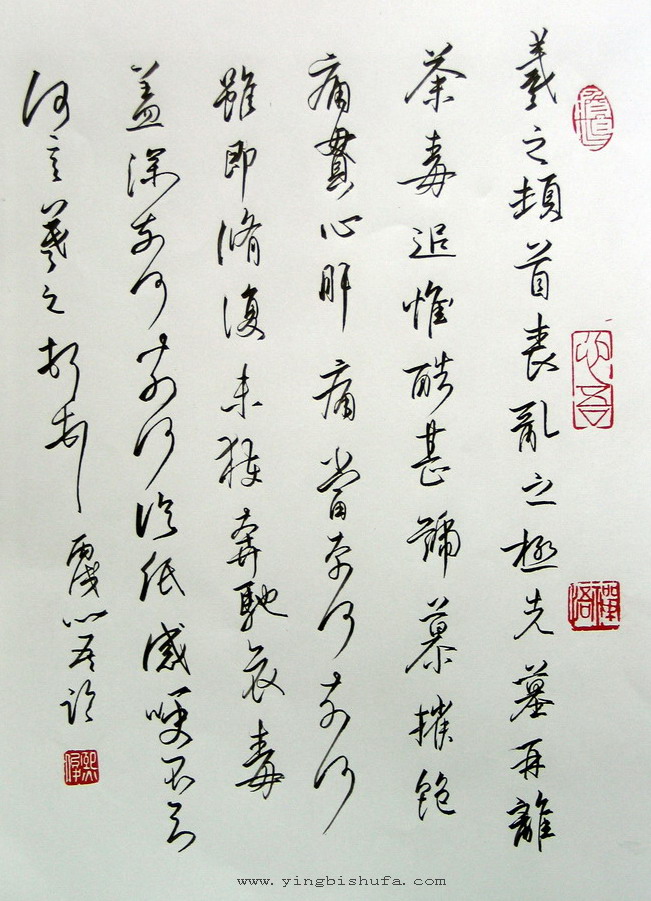 羲之頓首喪亂之極先墓再離
荼毒追惟酷甚號慕摧絕
痛貫心肝痛當奈何奈何
雖即脩復未獲奔馳哀毒
益深奈何奈何臨紙感哽不知
何言羲之頓首頓首 丙戌心吾臨
心吾
www.yingbishufa.com